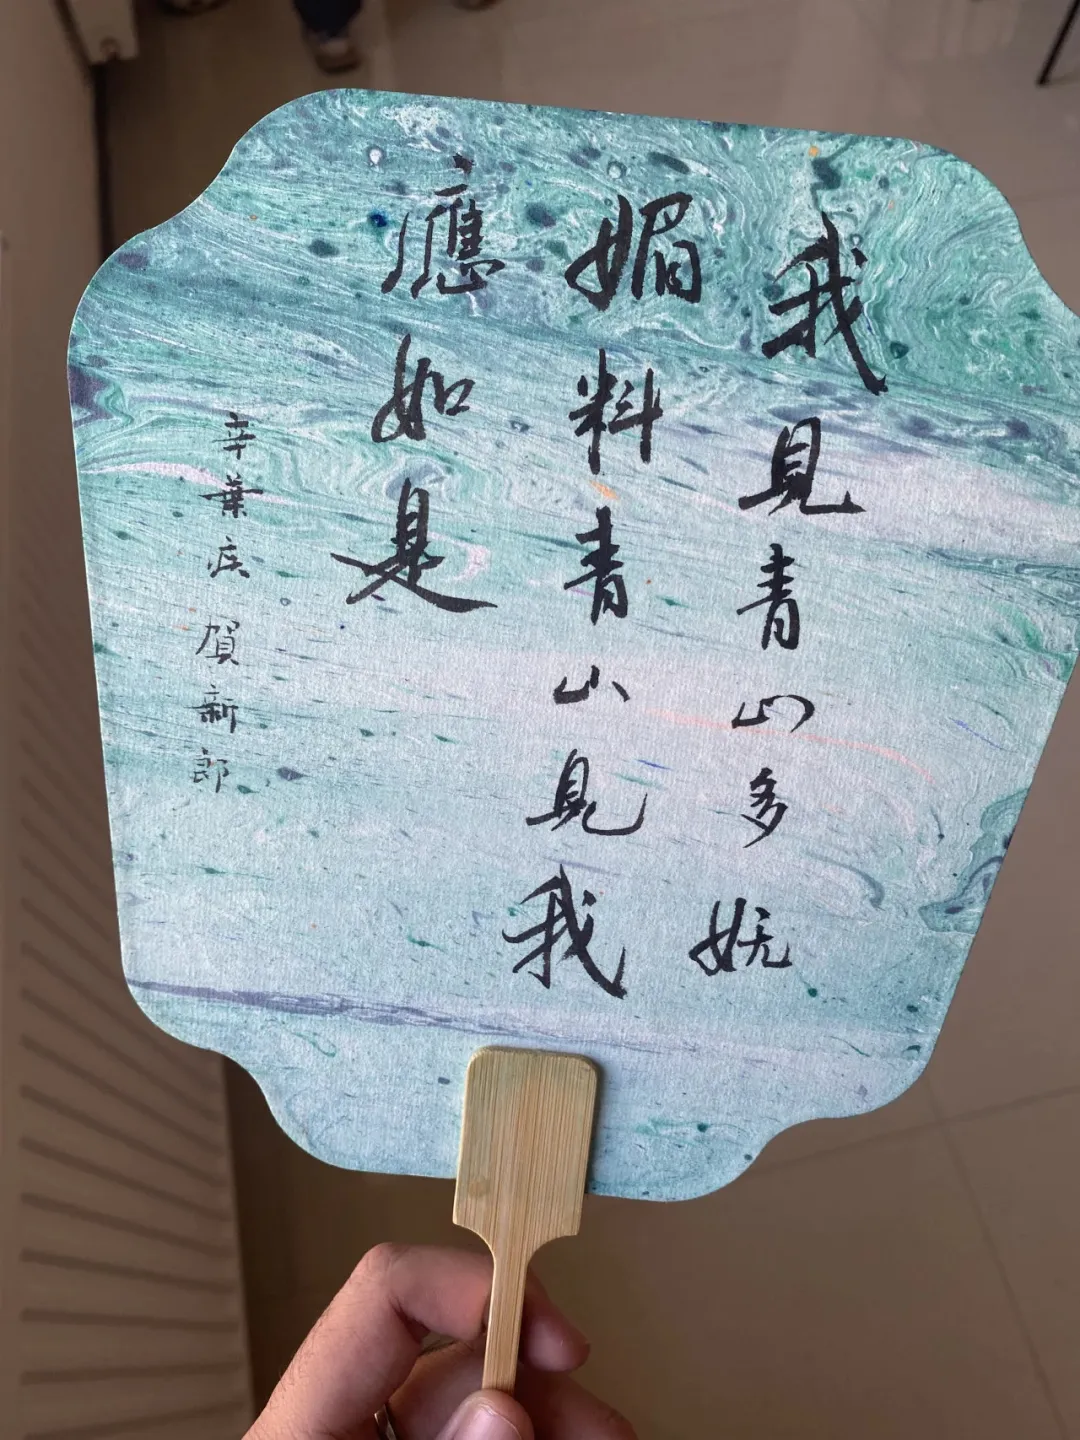 我見青山多妩
媚料青山見我
應如是
辛葉疾 賀新郎